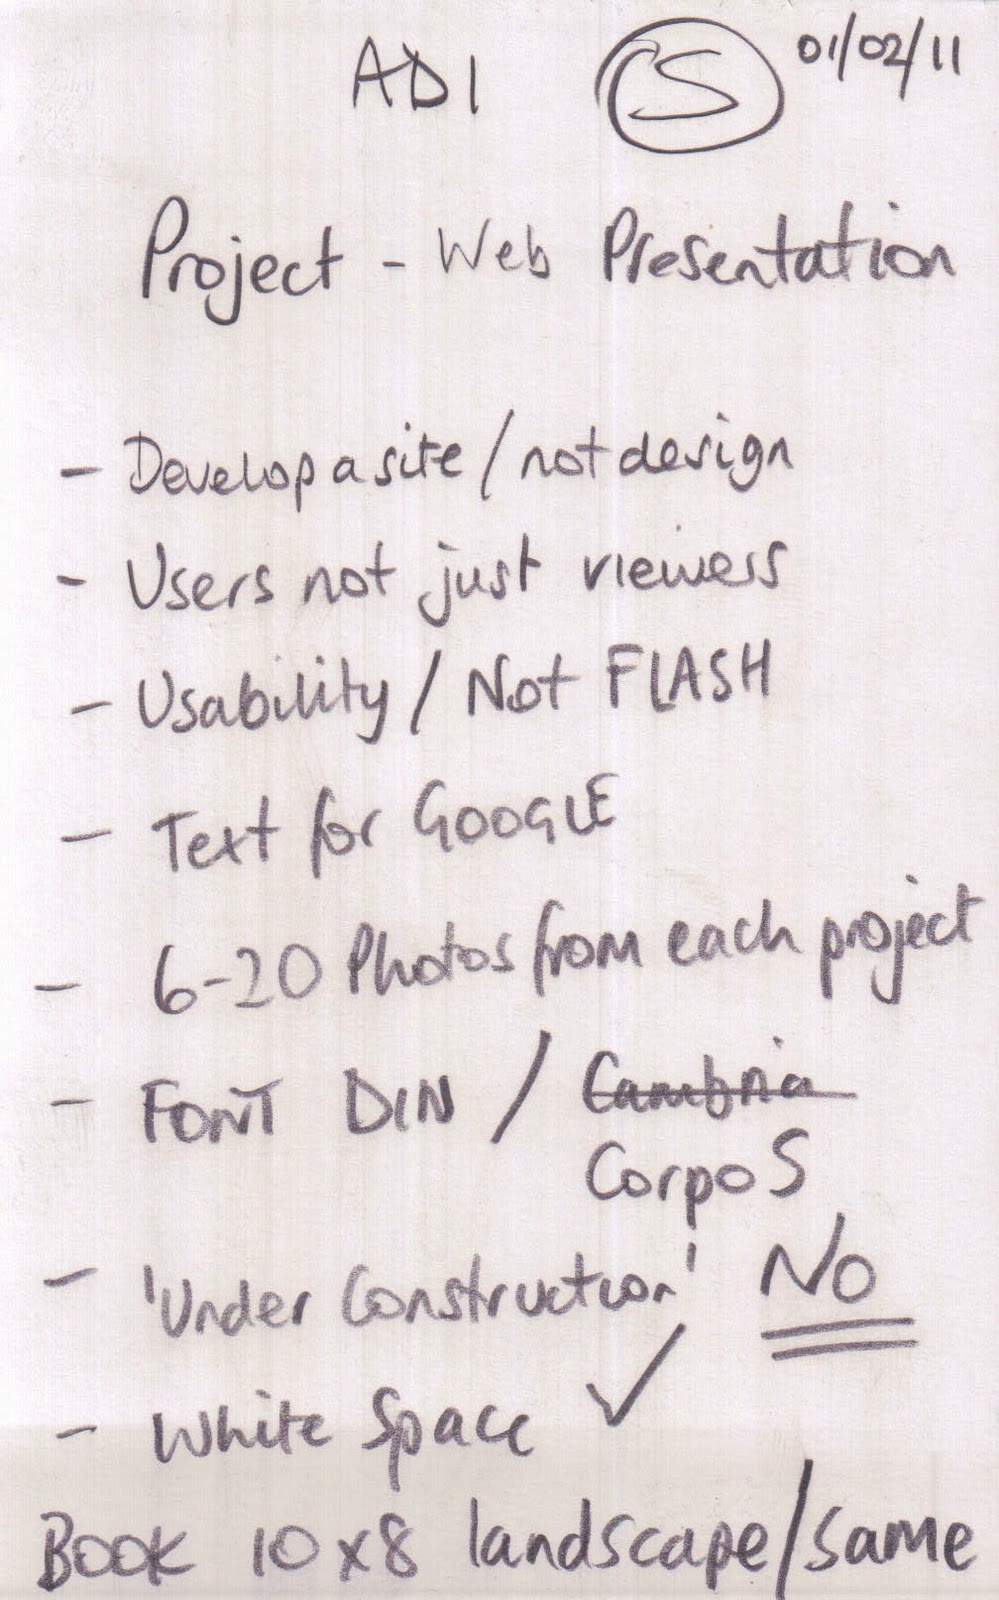 AD1 CS 01/02/11
Project - Web Presentation
- Develop a site / not design
- Users not just viewers
- Usability / Not FLASH
- Text for GOOGLE
- 6-20 Photos from each project
- FONT DIN / Cambria
Corpo S
- 'Under Construction' NO
- White Space ✓
BOOK 10x8 landscape/same